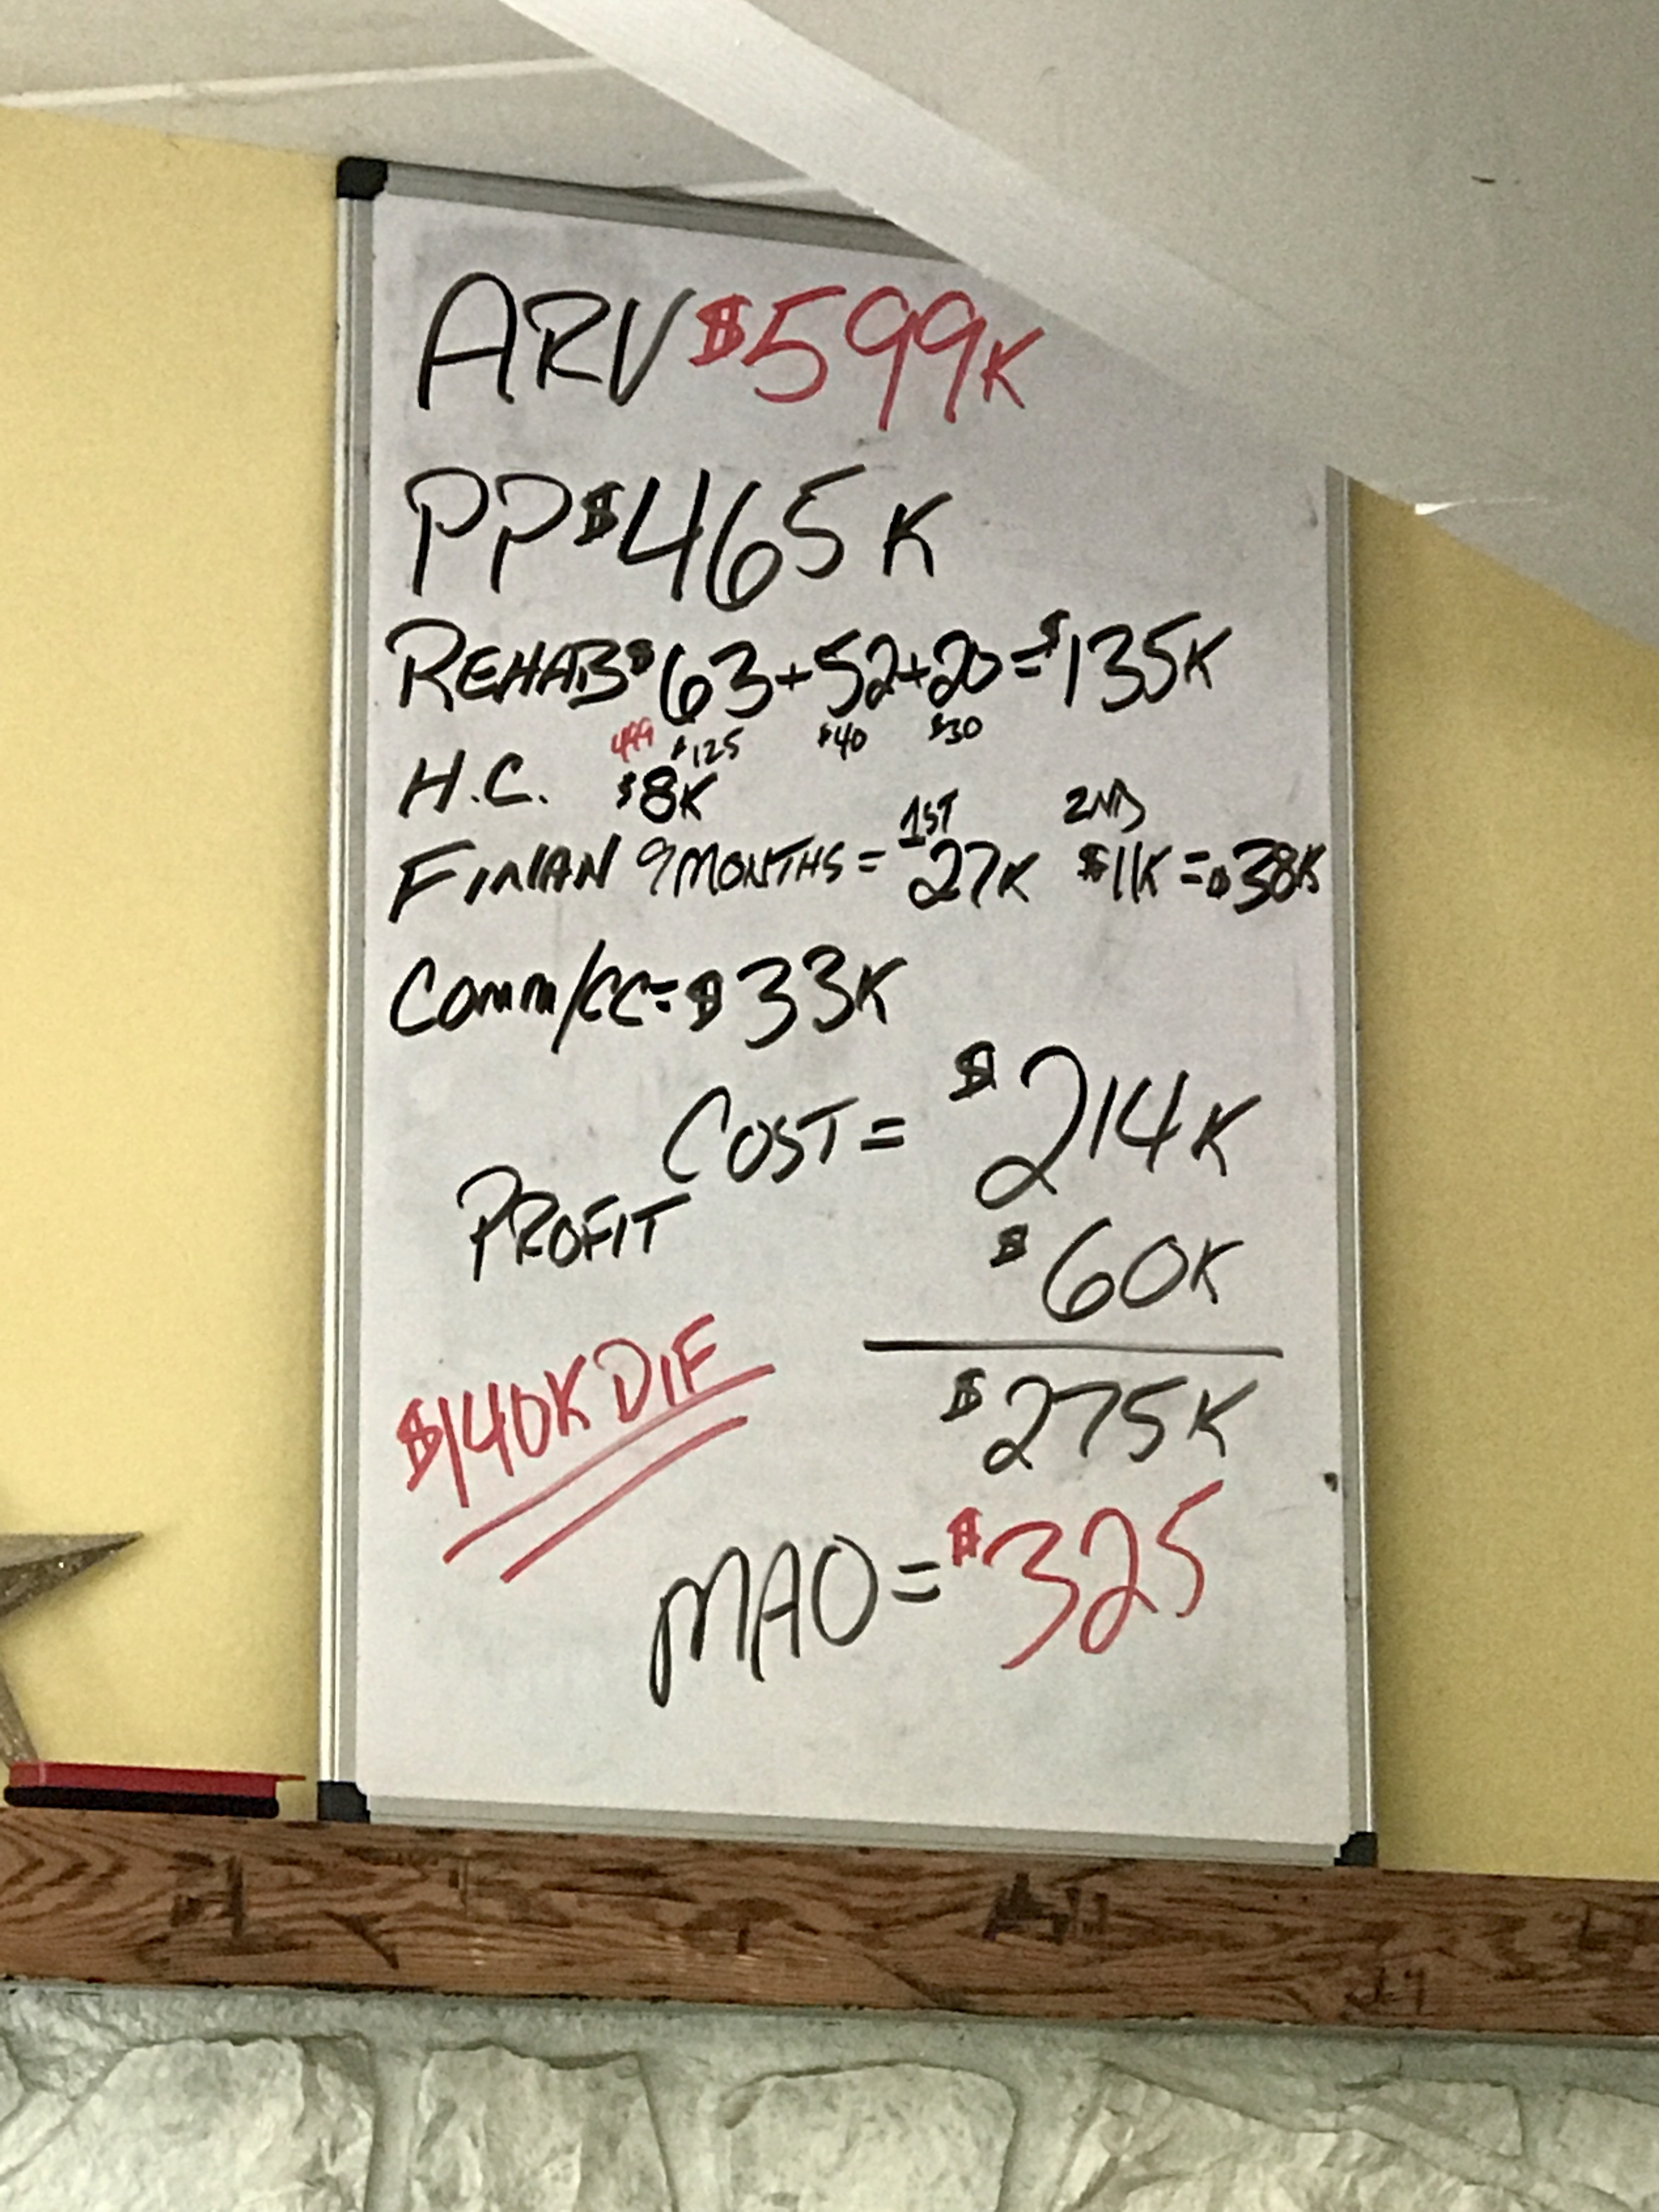 ARV $599K
PP $465K
REHAB $63+52+20=$135K
499 $125 $40 $30
H.C. $8K
1ST 2ND
FINAN 9 MONTHS = 27K $11K = $38K
COMM/CC = $33K
COST = $214K
PROFIT $60K
$275K
$140K DIF
MAO = $325